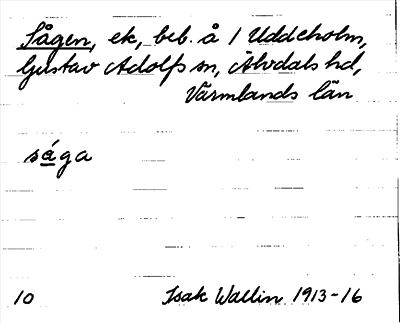 Sågen, ek, beb. å 1 Uddeholm,
Gustav Adolfs sn, Älvdals hd,
Värmlands län
sá̱ga
10 Isak Wallin 1913-16